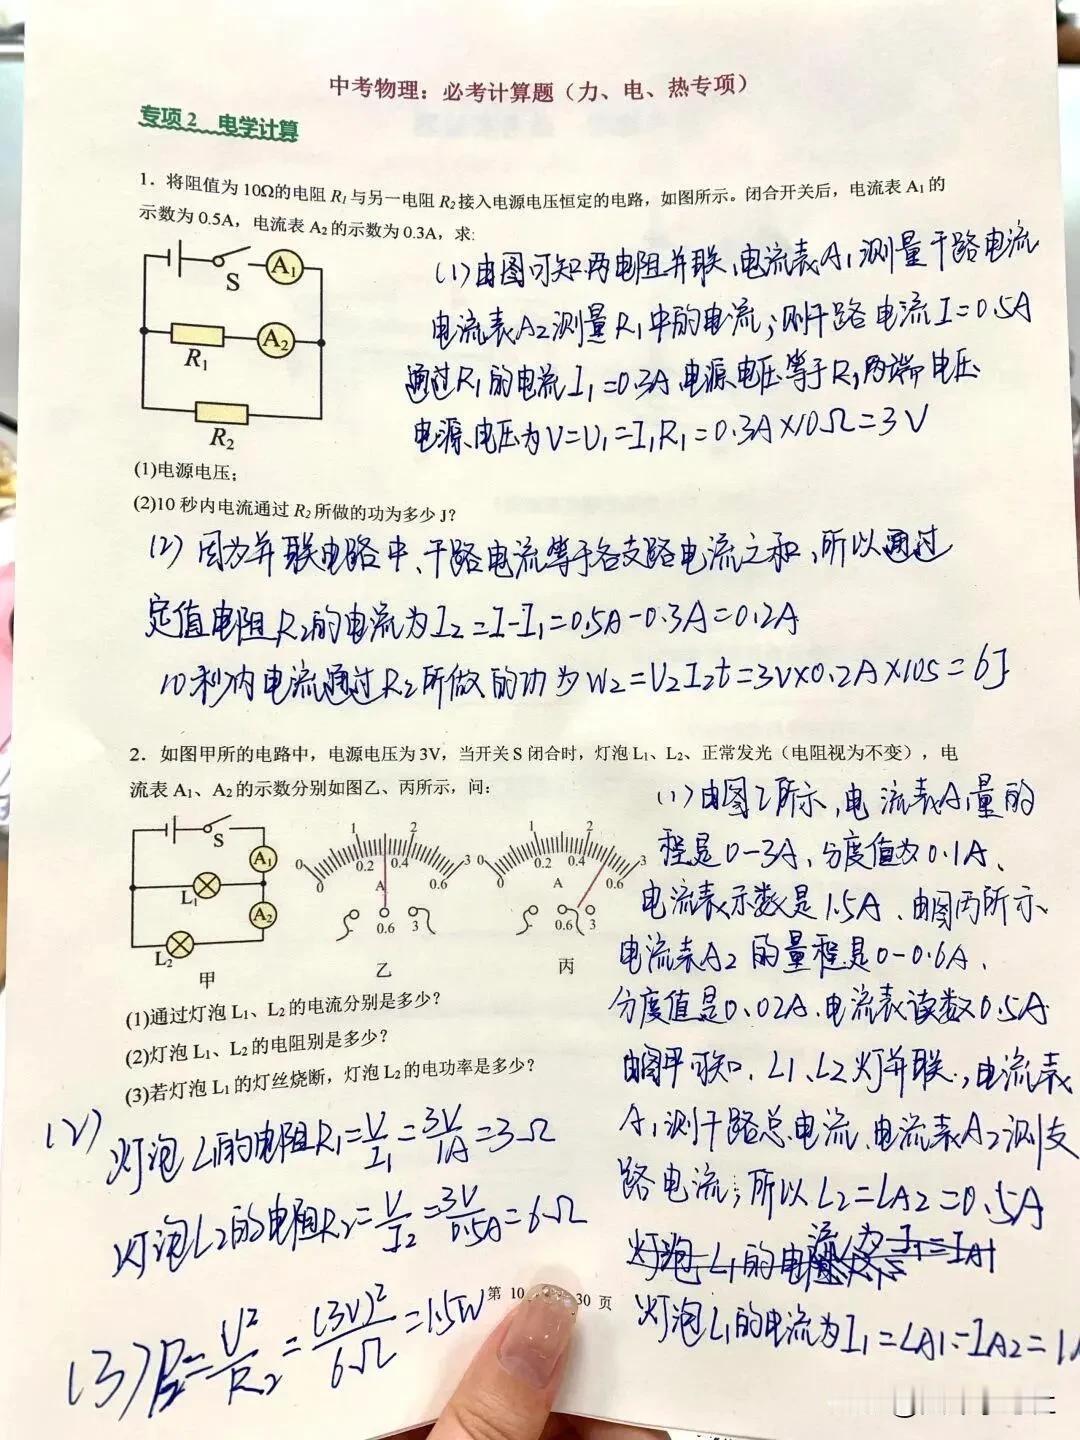 中考物理：必考计算题（力、电、热专项）
专项 2 电学计算
1．将阻值为 10Ω的电阻 R₁ 与另一电阻 R₂接入电源电压恒定的电路，如图所示。闭合开关后，电流表 A₁ 的
示数为 0.5A，电流表 A₂ 的示数为 0.3A，求:
S A₁
R₁ A₂
R₂
(1)由图可知两电阻并联,电流表A₁测量干路电流
电流表A2测量R₁中的电流;则干路电流I=0.5A
通过R₁的电流I₁=0.3A 电源电压等于R₁两端电压
电源电压为V=U₁=I₁R₁=0.3A×10Ω=3V
(1)电源电压；
(2)10 秒内电流通过 R₂ 所做的功为多少 J？
(2) 因为并联电路中、干路电流等于各支路电流之和,所以通过
定值电阻R2的电流为I2=I-I₁=0.5A-0.3A=0.2A
10秒内电流通过R2所做的功为W2=U2I2t=3V×0.2A×10S=6J
2．如图甲所的电路中，电源电压为 3V，当开关 S 闭合时，灯泡 L₁、L₂、正常发光（电阻视为不变），电
流表 A₁、A₂ 的示数分别如图乙、丙所示，问:
S A₁ L₁ A₂ L₂ 甲
0 1 2 3 0 0.2 0.4 0.6 A 0.6 3 乙
0 1 2 3 0 0.2 0.4 0.6 A 0.6 3 丙
(1)由图乙所示,电流表A₁量的
程是0-3A、分度值为0.1A、
电流表示数是1.5A、由图丙所示、
电流表A2的量程是0-0.6A、
分度值是0.02A.电流表读数0.5A
由图甲可知、L1、L2灯并联,电流表
A₁测干路总电流、电流表A2测支
路电流;所以L2=LA2=0.5A
灯泡L₁的电流为I₁=IA1
灯泡L₁的电流为I₁=LA1-IA2=1A
(1)通过灯泡 L₁、L₂ 的电流分别是多少？
(2)灯泡 L₁、L₂ 的电阻别是多少？
(3)若灯泡 L₁ 的灯丝烧断，灯泡 L₂ 的电功率是多少？
(2) 灯泡L₁的电阻R₁=V/I₁=3V/1A=3Ω
灯泡L2的电阻R2=V/I2=3V/0.5A=6Ω
(3)P2=U²/R2=(3V)²/6Ω=1.5W
第 10 30 页